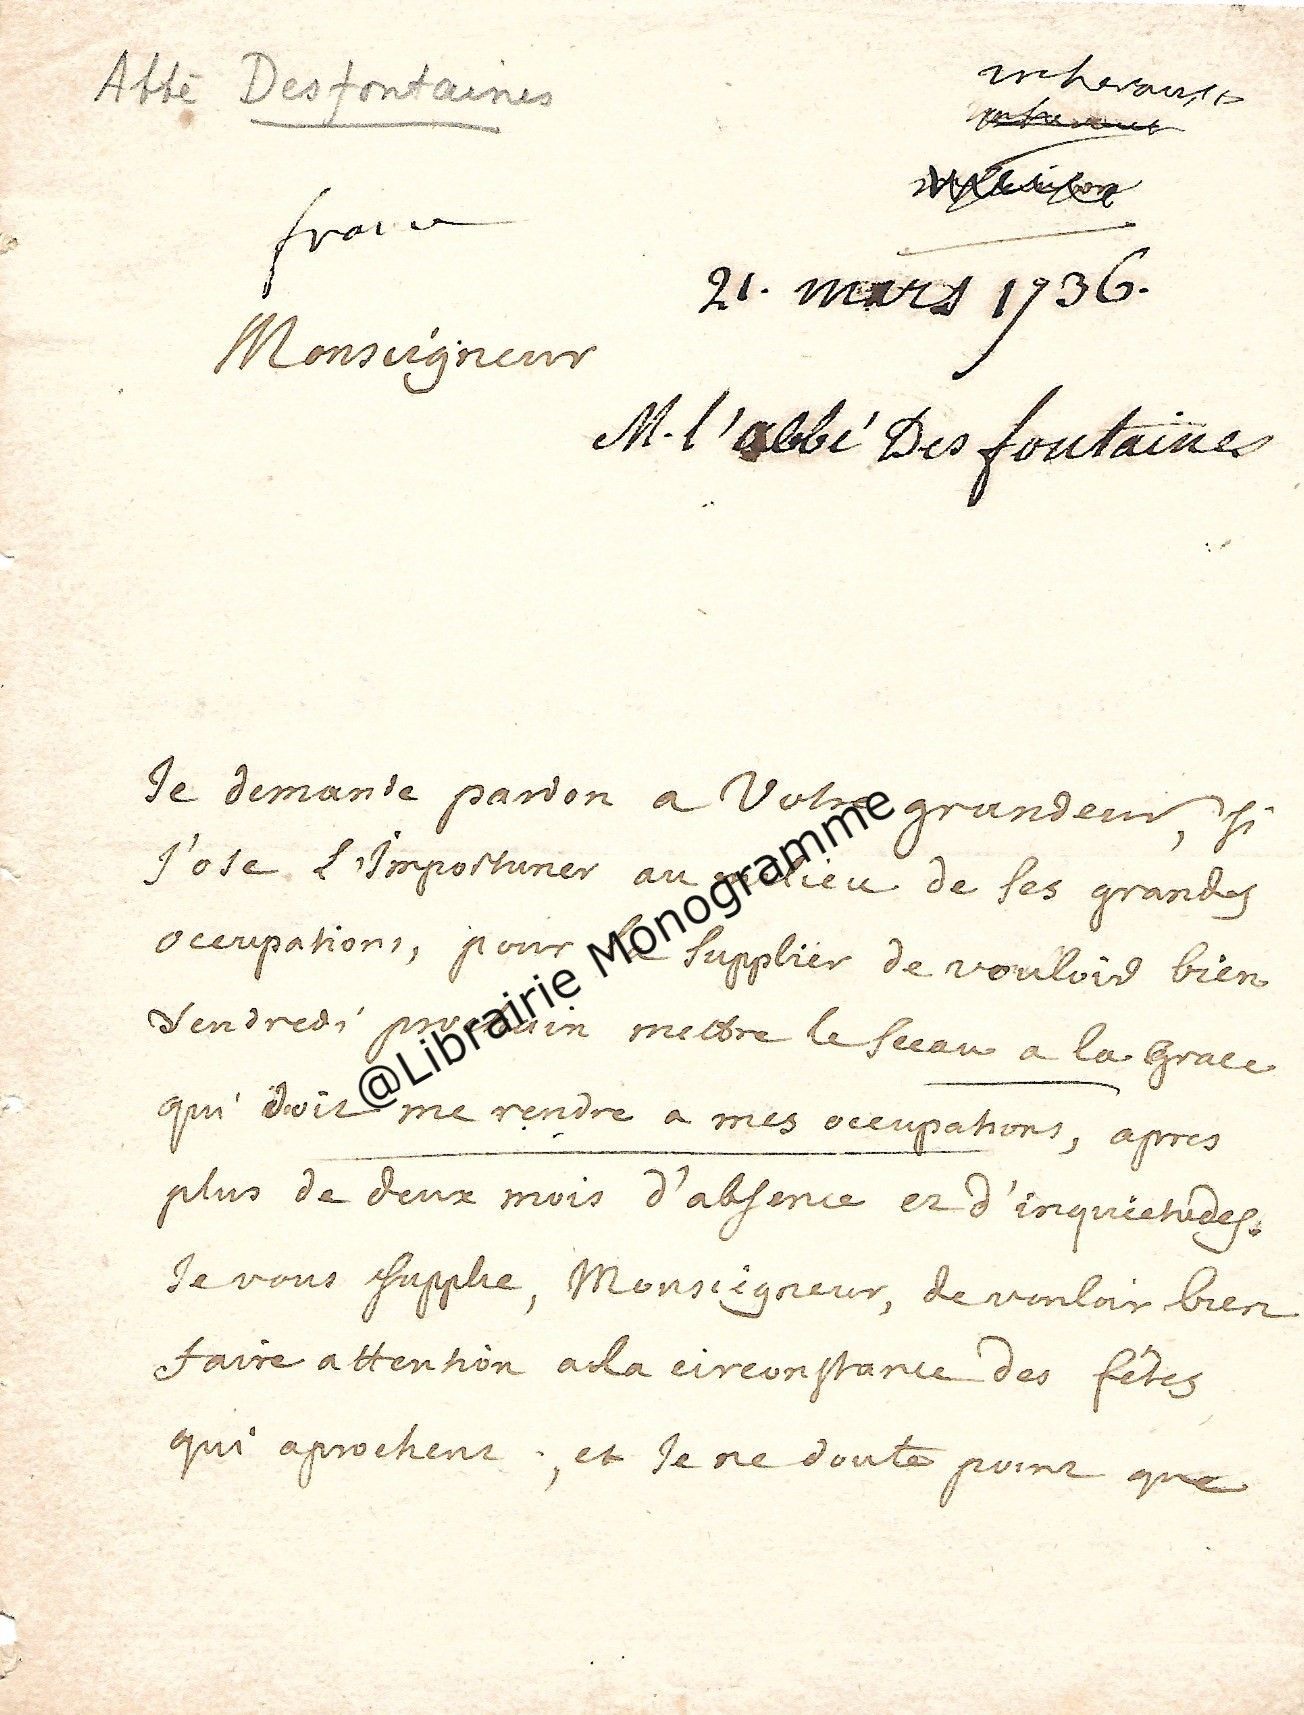 Abbé Desfontaines
21. mars 1736.
Monseigneur
M. l'abbé Des fontaines
Je demande pardon a Votre grandeur, si
J'ose L'Importuner au milieu de ses grandes
occupations, pour la supplier de vouloir bien
Vendredi prochain mettre le sceau a la Grace
qui doit me rendre a mes occupations, apres
plus de deux mois d'absence et d'inquietudes.
Je vous supplie, Monseigneur, de vouloir bien
faire attention a la circonstance des fêtes
qui aprochent ; et Je ne doute point que
@Librairie Monogramme